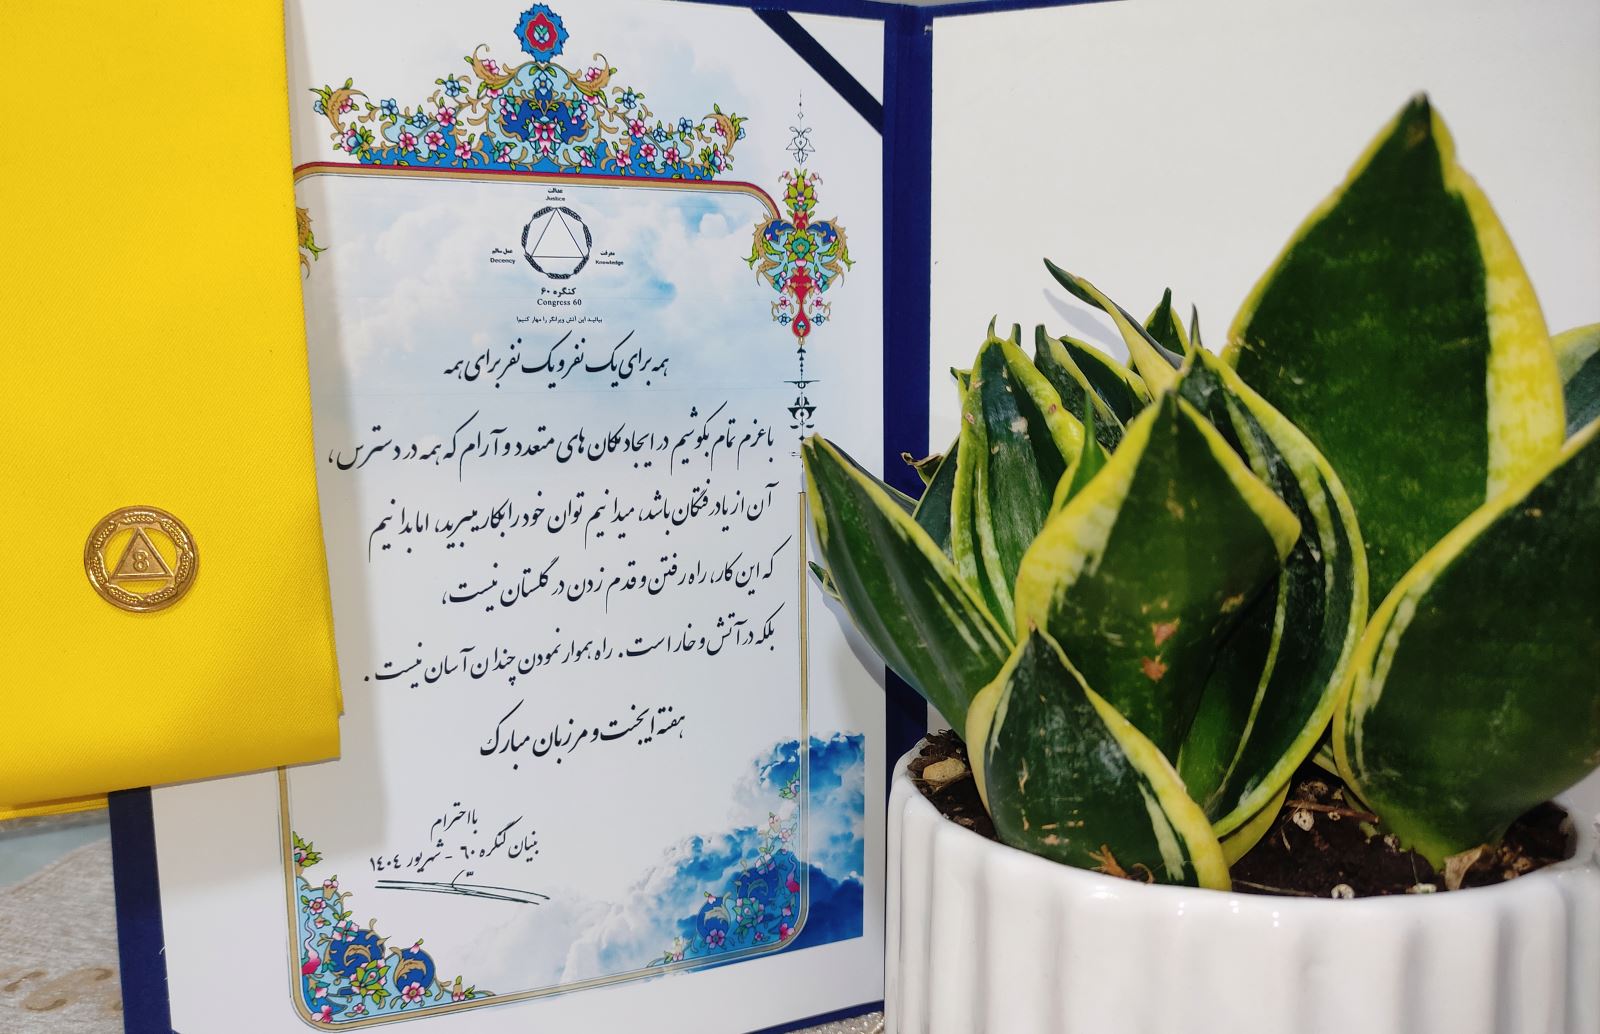 عدالت
Justice
عمل سالم
Decency
معرفت
Knowledge
کنگره ۶۰
Congress 60
بیائید این آتش ویرانگر را مهار کنیم!
همه برای یک نفر و یک نفر برای همه
با عزم تمام بکوشیم در ایجاد مکان های متعدد و آرام که همه در دسترس،
آن از یاد رفتگان باشد، میدانیم توان خود را بکار میبرید، اما بدانیم
که این کار، راه رفتن و قدم زدن در گلستان نیست،
بلکه در آتش و خار است. راه هموار نمودن چندان آسان نیست.
هفته ایجنت و مرزبان مبارک
با احترام
بنیان کنگره ۶۰ - شهریور ۱۴۰۴
8